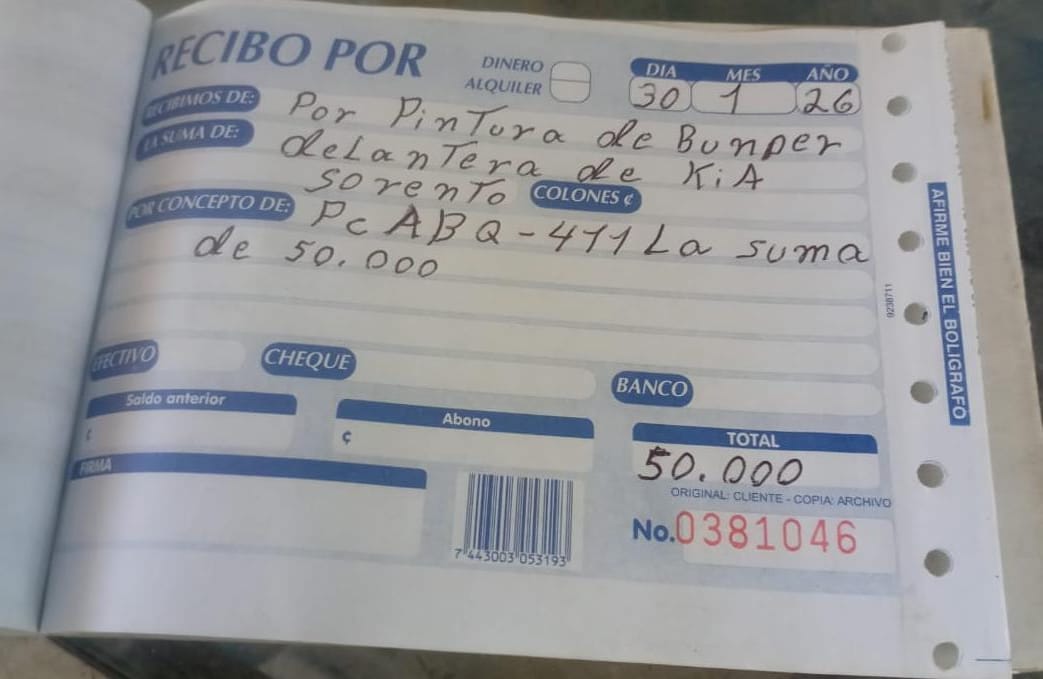 RECIBO POR
DINERO
ALQUILER
DIA MES AÑO
30 1 26
RECIBIMOS DE: Por Pintura de Bunper
LA SUMA DE: delantera de KiA
sorento COLONES ¢
POR CONCEPTO DE: Pc ABQ-411 La suma
de 50.000
EFECTIVO
CHEQUE
BANCO
Saldo anterior
¢
Abono
¢
TOTAL
50.000
FIRMA
ORIGINAL: CLIENTE - COPIA: ARCHIVO
No.0381046
7 443003 053193
AFIRME BIEN EL BOLIGRAFO